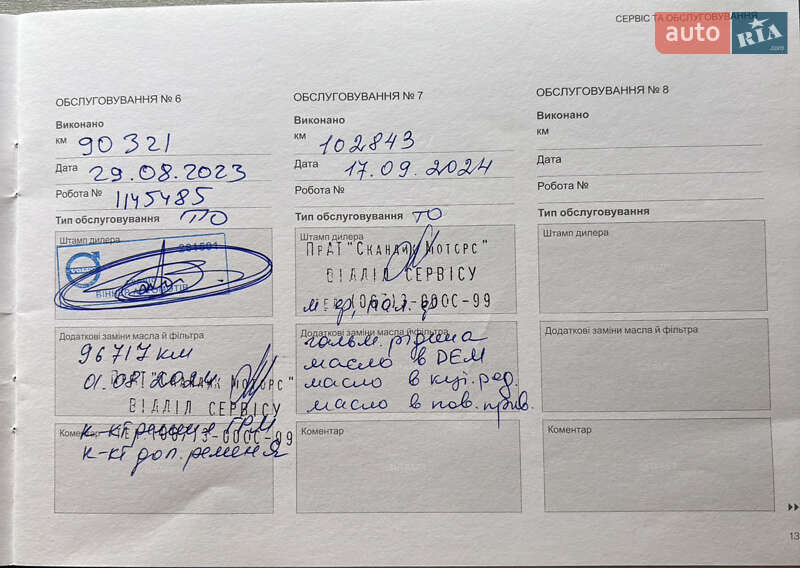 СЕРВІС ТА ОБСЛУГОВУВАННЯ
auto RIA.com
ОБСЛУГОВУВАННЯ № 6
Виконано
км 90 321
Дата 29.08.2023
Робота № 1145485
Тип обслуговування ТО
Штамп дилера
VOLVO
Додаткові заміни масла й фільтра
96717 км
01.08.2024
ПРАТ "СКАНДІК МОТОРС"
ВІДДІЛ СЕРВІСУ
Коментар
СЕР(06)13-000С-99
к-кт ременя ГРМ
к-кт доп. ременя
ОБСЛУГОВУВАННЯ № 7
Виконано
км 102843
Дата 17.09.2024
Робота №
Тип обслуговування ТО
Штамп дилера
ПРАТ "СКАНДІК МОТОРС"
ВІДДІЛ СЕРВІСУ
СЕР(06)13-000С-99
Додаткові заміни масла й фільтра
гальм. рідина
масло в DEM
масло в куг. ред.
масло в пов. прив.
Коментар
ОБСЛУГОВУВАННЯ № 8
Виконано
км
Дата
Робота №
Тип обслуговування
Штамп дилера
Додаткові заміни масла й фільтра
Коментар
13